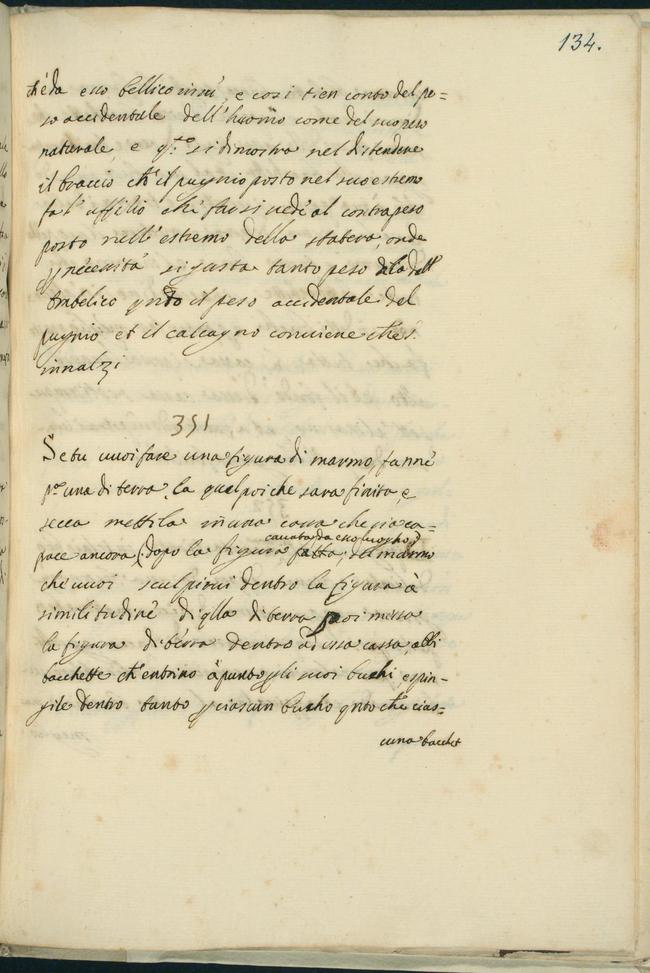 134.
ch'é da esso bellico insù, e cosi tien conto del pe=
so accidentale dell' huomo come del suo peso
naturale, e q.sto si dimostra nel distendere
il braccio che il pugnio posto nel suo estremo
fa l' uffitio che far si vede al contrapeso
posto nell' estremo della statera, onde
p necessità si gasta tanto peso di la dall'
umbelico qnto il peso accidentale del
pugnio et il calcagno conviene che s'
innalzi
351
Se tu vuoi fare una figura di marmo, fanne
p.a una di terra, la qual poi che sara finita, e
secca mettila in una cassa che sia ca=
pace ancora (dopo la figura fatta, cavata da esso luogho) del marmo
che vuoi sculpirui dentro la figura à
similitudine di qlla di terra poi messa
la figura di terra dentro ad essa cassa, abbi
bacchette che entrino à punto p gli suoi buchi, e spin-
gile dentro tanto p ciascun bucho qnto che cias=
cuna bacchet